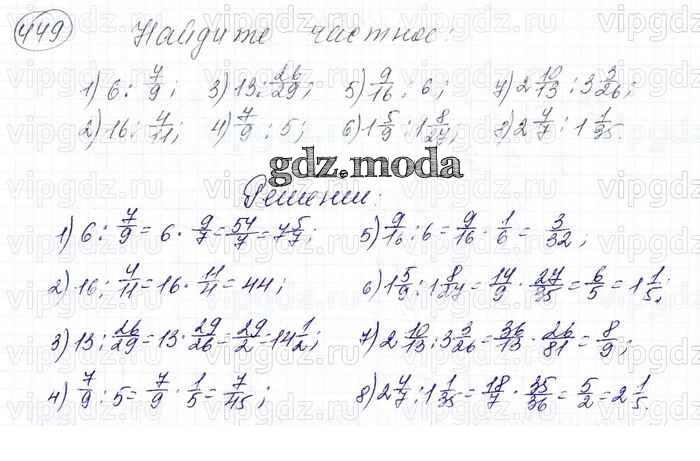 449 Найдите частное:
1) 6 : 7/9; 3) 13 : 26/29; 5) 9/16 : 6; 7) 2 10/13 : 3 3/26;
2) 16 : 4/11; 4) 7/9 : 5; 6) 1 5/9 : 1 8/27; 8) 2 4/7 : 1 1/35.
gdz.moda
Решение:
1) 6 : 7/9 = 6 · 9/7 = 54/7 = 7 5/7; 5) 9/16 : 6 = 9/16 · 1/6 = 3/32;
2) 16 : 4/11 = 16 · 11/4 = 44; 6) 1 5/9 : 1 8/27 = 14/9 · 27/35 = 6/5 = 1 1/5;
3) 13 : 26/29 = 13 · 29/26 = 29/2 = 14 1/2; 7) 2 10/13 : 3 3/26 = 36/13 · 26/81 = 8/9;
4) 7/9 : 5 = 7/9 · 1/5 = 7/45; 8) 2 4/7 : 1 1/35 = 18/7 · 35/36 = 5/2 = 2 1/5.
vipgdz.ru